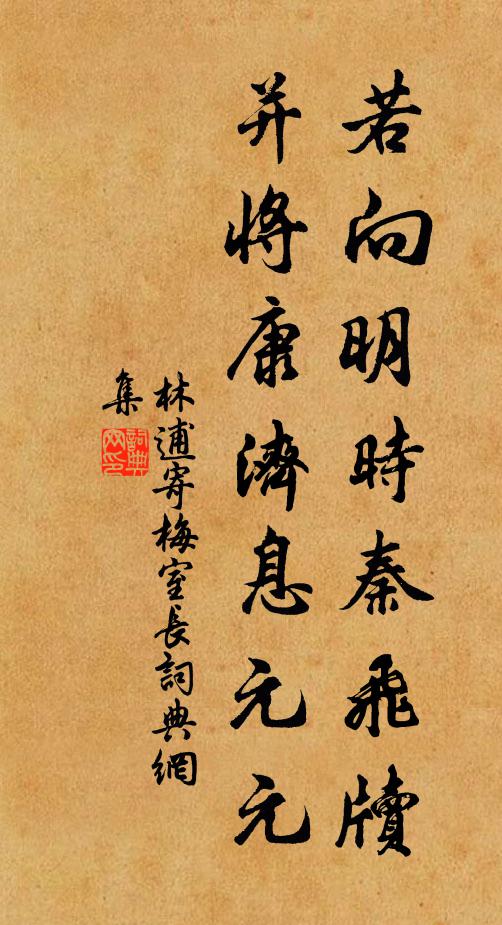 若向明時秦飛牘
并將康濟息元元
林逋寄梅室長詞典網
集
詞典
網印